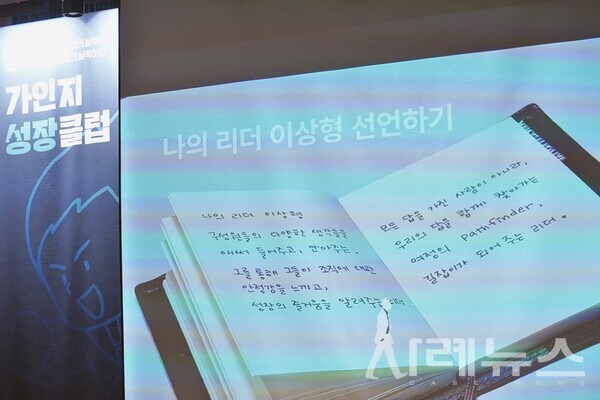 가인지
성장클럽
나의 리더 이상형 선언하기
나의 리더 이상형
구성원들의 다양한 생각들을
애써 들어주고, 안아주는,
그를 통해 그들이 조직에 대한
안정감을 느끼고,
성장의 즐거움을 알려주는 리더
모든 답을 가진 사람이 아니라,
우리의 답을 함께 찾아가는
여정의 pathfinder.
길잡이가 되어 주는 리더.
사례뉴스